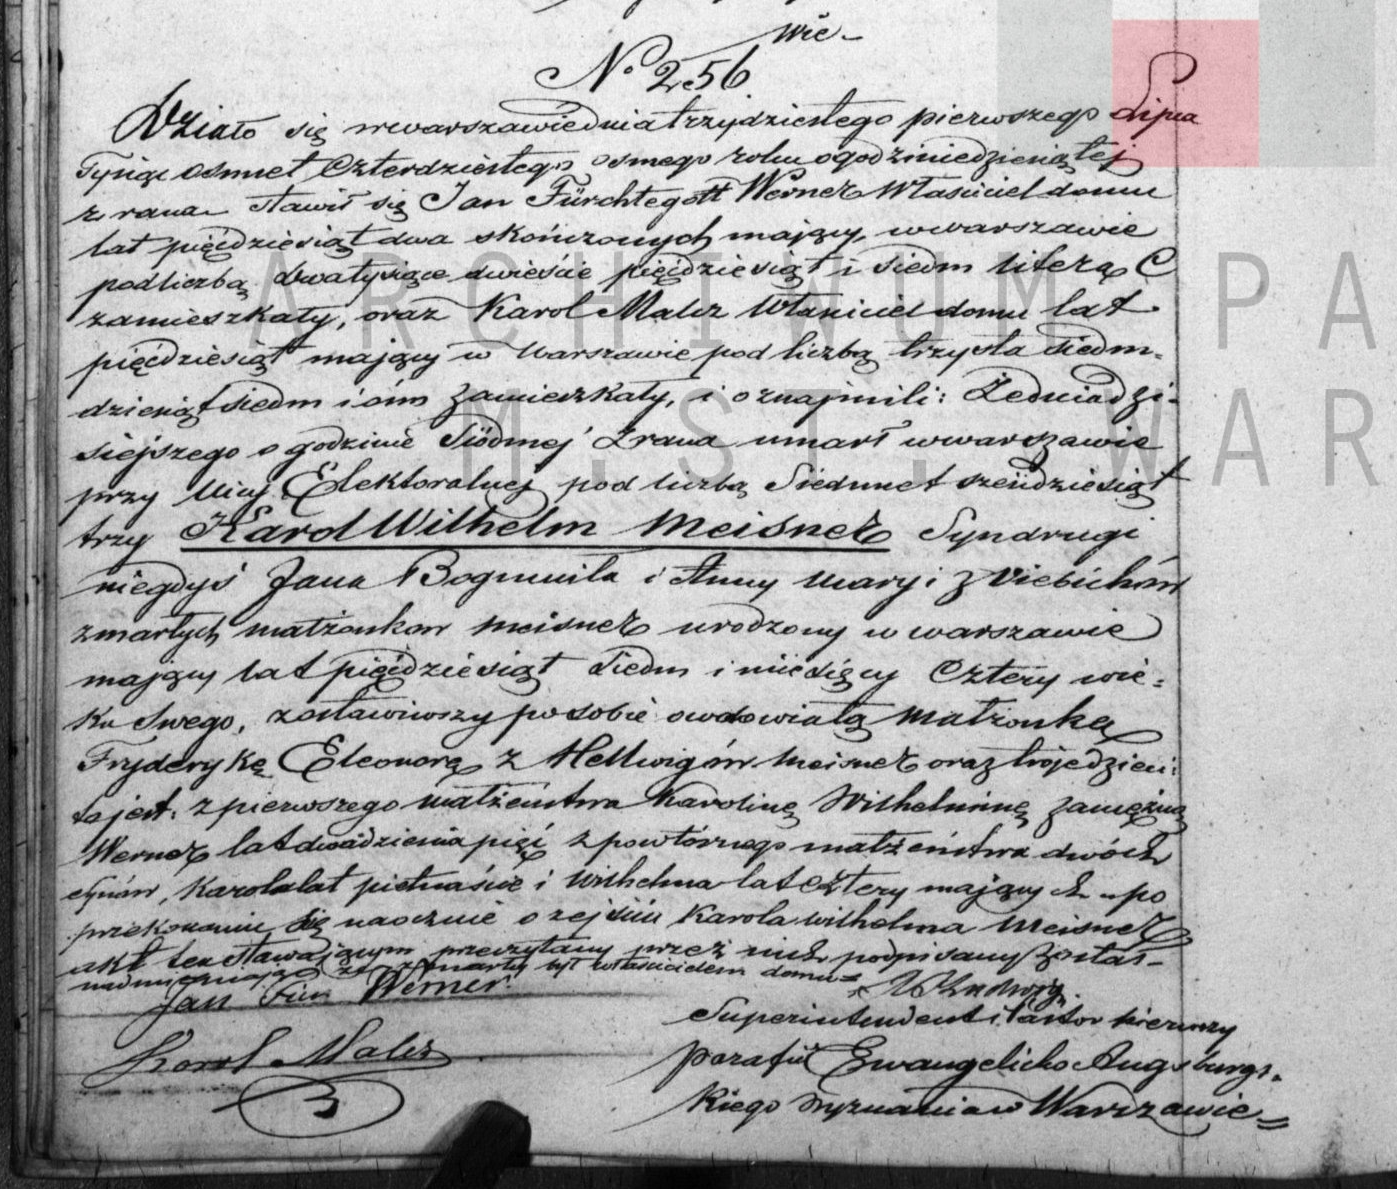 wie-
No 256
Działo się w warszawie dnia trzydziestego pierwszego Lipca
Tysiąc osmset Czterdziestego osmego roku o godzinie dziesiątej
z rana stawił się Jan Fürchtegott Werner Właściciel domu
lat pięćdziesiąt dwa skończonych mający, w warszawie
pod liczbą dwatysiące dwieście pięćdziesiąt i siedm literą C
zamieszkały, oraz Karol Malcz Właściciel domu lat
pięćdziesiąt mający w Warszawie pod liczbą trzysta siedm-
dziesiąt siedm i óm zamieszkały, i oznajmili: Że dnia dzi-
siejszego o godzinie Siódmej Zrana umarł w warszawie
przy Ulicy Elektoralnej pod liczbą Siedmset sześćdziesiąt
trzy Karol Wilhelm Meisner Syn drugi
niegdyś Jana Bogumiła i Anny Maryi z Viebichów
zmarłych małżonkow Meisner urodzony w warszawie
mający lat pięćdziesiąt siedm i miesięcy Cztery wie=
ku Swego, zostawiwszy po sobie owdowiałą Małżonkę
Fryderykę Eleonorę z Hellwigów Meisner oraz troje dzieci:
to jest: z pierwszego małżeństwa Karolinę Wilhelminę zamężną
Werner lat dwadzieścia pięć z powtórnego małżeństwa dwóch
synów, Karola lat piętnaście i Wilhelma lat cztery mających - po
przekonaniu się naocznie o zejściu Karola Wilhelma Meisner
akt ten stawającym przeczytany przez nich podpisany został -
nadmieniając że zmarły był właścicielem domu =
Jan Für. Werner
Karol Malcz
Ludwig
Superintendent i Pastor pierwszy
parafii Ewangelicko Augsburgs-
kiego wyznania w Warszawie =
ARCHIWUM PA
M. ST. WAR